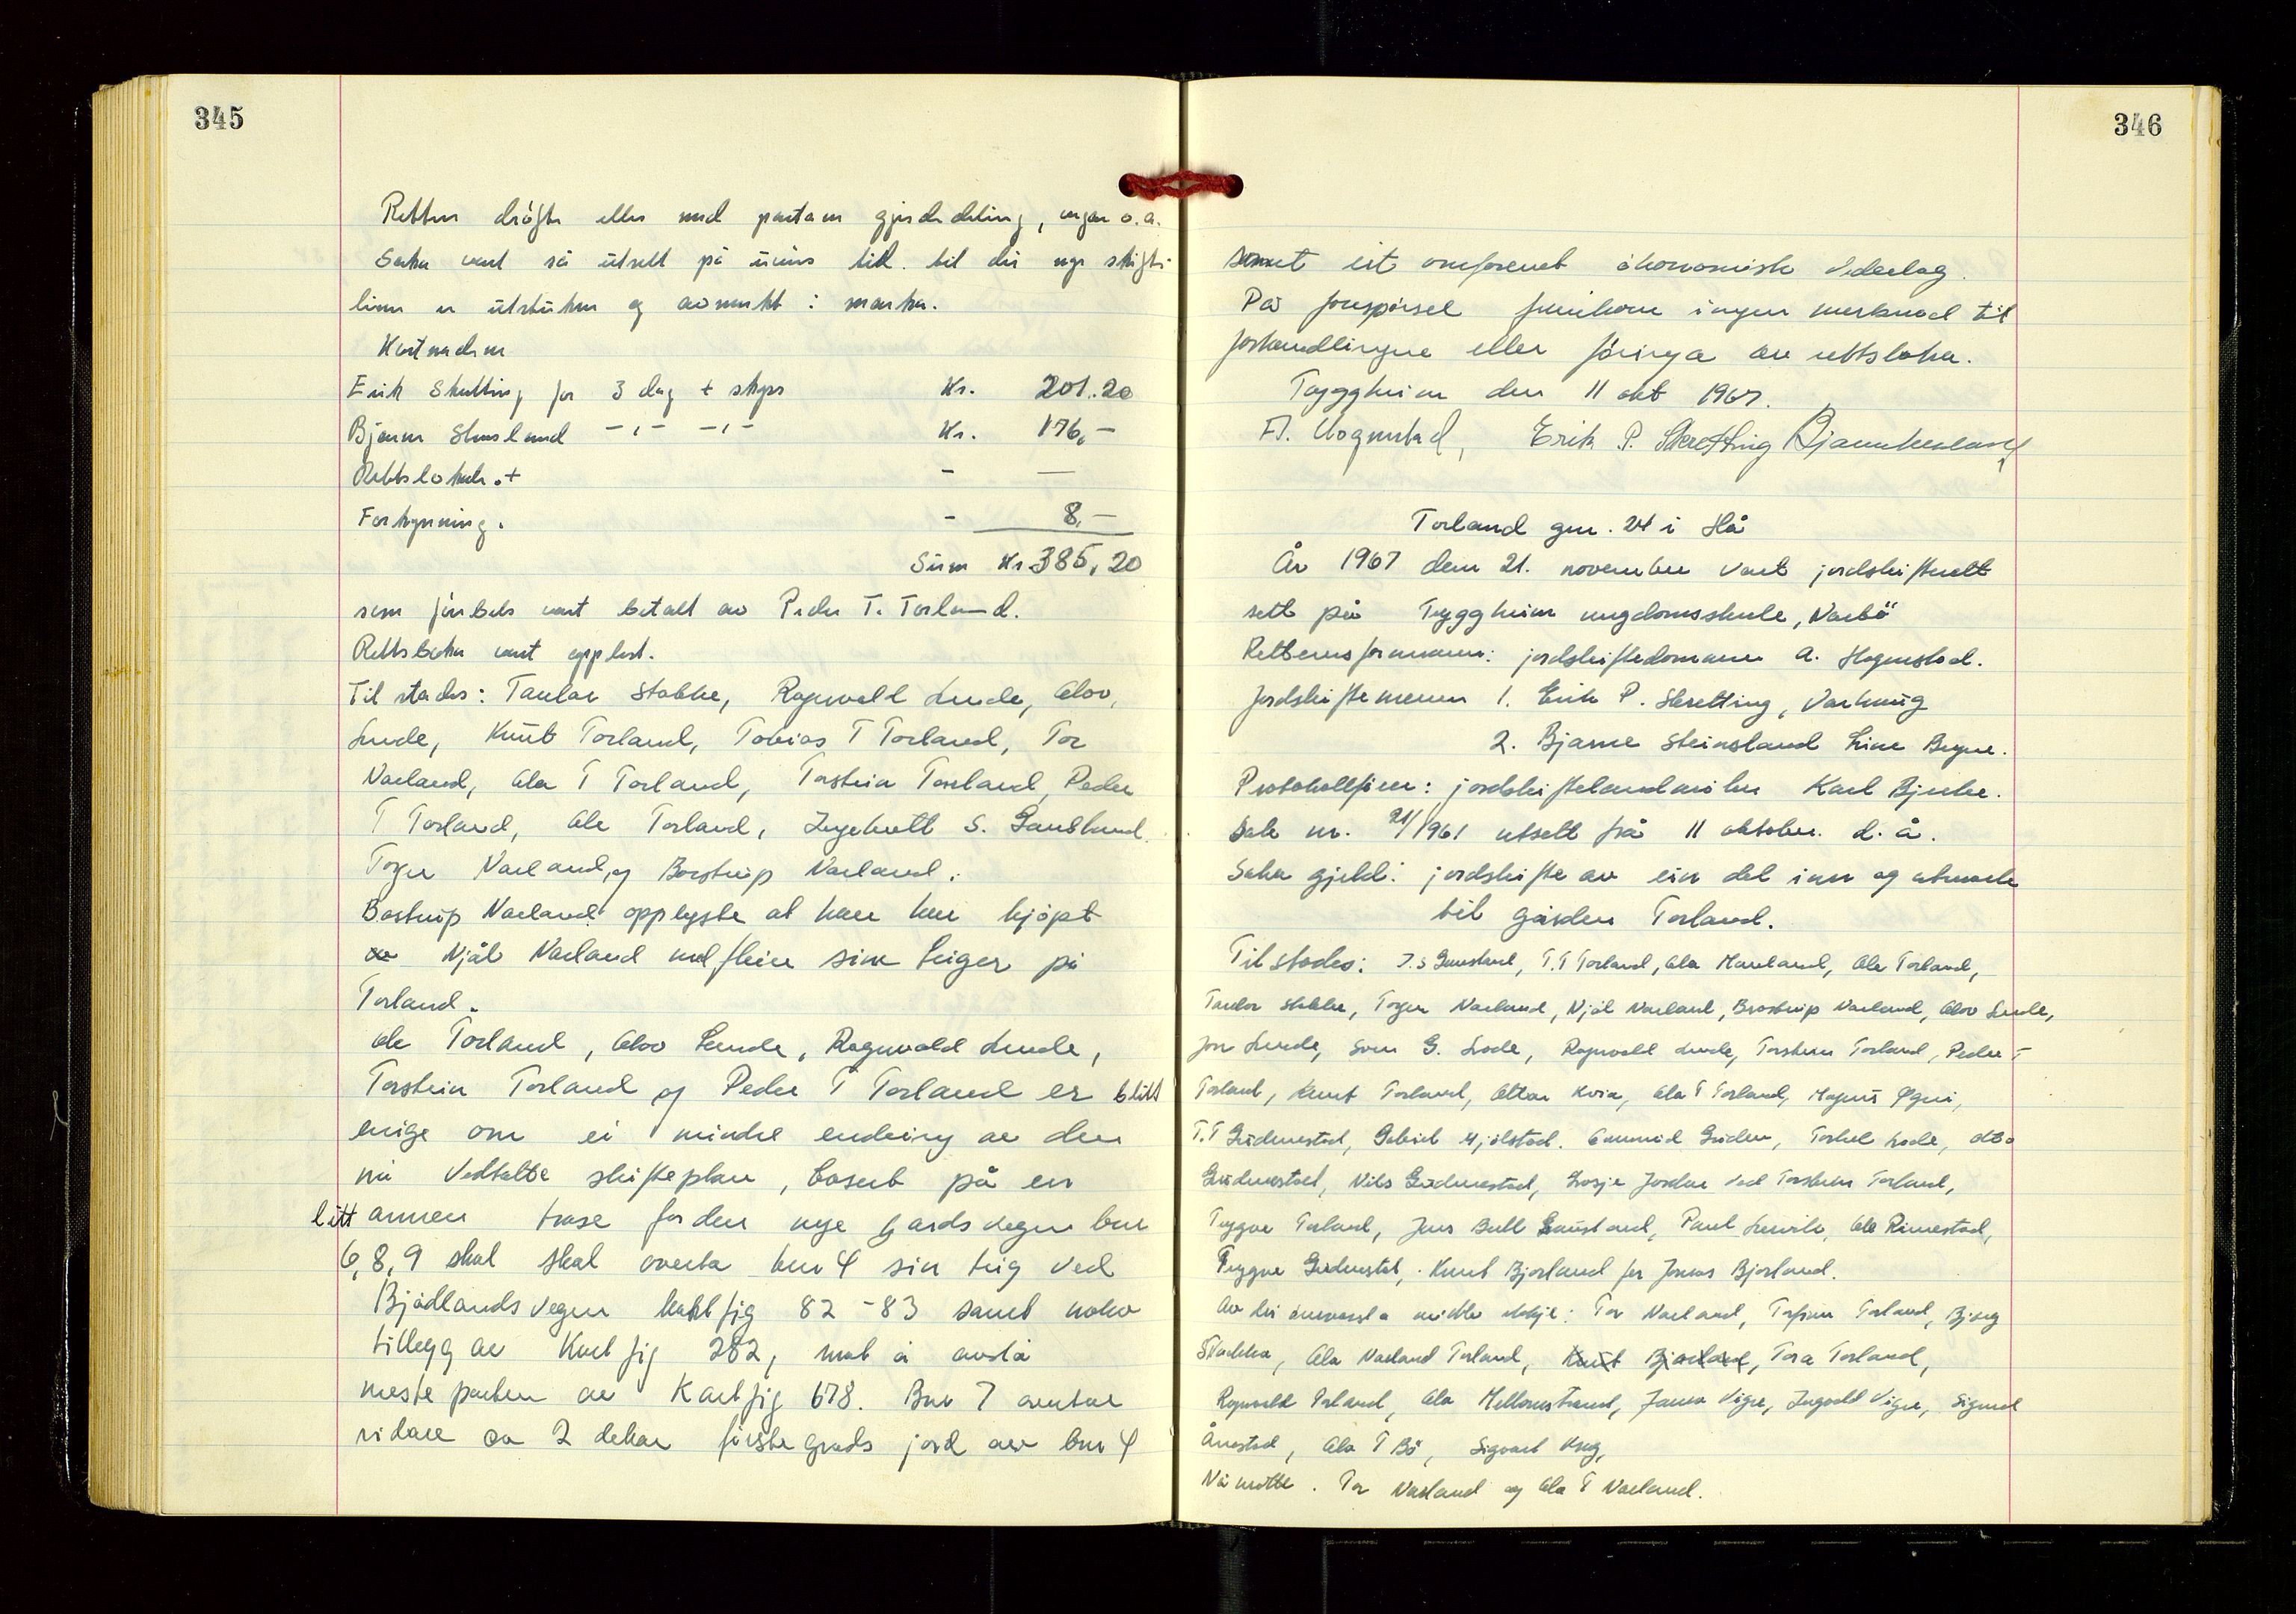 345
Retten drøfta elles med partane gjerdedeling, vegar o.a.
Saka vart så utsett på uviss tid. til dei nye skifte-
linene er utstukne og avmerkt i marka.
Kostnaden
Erik Skretting for 3 dag + skyss Kr. 201.20
Bjarne Steinsland -"- -"- Kr. 176,-
Rettslokale.+ - —
Forkynning. - 8,-
Sum Kr. 385,20
som førebels vart betalt av Peder T. Torland.
Rettsboka vart opplest.
Til stades: Taralv Stokke, Ragnvald Lende, Olav
Lende, Knut Torland, Tobias T Torland, Tor
Varland, Ola T Torland, Torstein Torland, Peder
T Torland, Ole Torland, Ingebrett S. Gausland
Torger Varland, og Børstrup Varland.
Børstrup Varland opplyste at han har kjøpt
av Njål Varland sine teigar på
Torland.
Ole Torland, Olav Lende, Ragnvald Lende,
Torstein Torland og Peder T Torland er blitt
enige om ei mindre endring av den
nå vedtatte skifteplan, basert på en
litt annen trase for den nye gardsvegen bnr
6, 8, 9 skal skal overta bnr 4 sin teig ved
Bjødlandsvegen kartfig 82 - 83 samt noko
tillegg av Kartfig 282, mot å avstå
meste parten av Kartfig 678. Bnr 7 avstår
vidare ca 2 dekar første grads jord av bnr 4
346
samt eit omforenet økonomisk vederlag.
På forespørsel framkom ingen merknad til
forhandlingene eller føringa av rettsboka.
Tryggheim den 11 okt 1967.
A. Hognestad, Erik P. Skretting Bjarne Steinsland
Torland gnr. 24 i Hå
År 1967 den 21. november vart jordskifterett
sett på Tryggheim ungdomsskule, Nærbø
Rettens formann: jordskiftedomaren A. Hognestad.
Jordskiftemenn 1. Erik P. Skretting, Varhaug
2. Bjarne Steinsland Line Bryne.
Protokollfører: jordskiftekandidaten Karl Bjerke.
Sak nr. 21/1961 utsett frå 11 oktober d. å.
Saka gjeld: jordskifte av ein del inn og utmark
til garden Torland.
Til stades: I. S Gausland, T. T Torland, Ola Haarland, Ole Torland,
Taralv Stokke, Torger Varland, Njål Varland, Børstrup Varland, Olav Lende,
Jon Lende, Sven G. Lode, Ragnvald Lende, Torstein Torland, Peder T
Torland, Knut Torland, Ottar Kvia, Ola T Torland, Magnus
T. T Gudmestad, Gabriel Mjølstad. Torkel Lode, Otto
Gudmestad, Nils Gudmestad, ved Torstein Torland,
Trygve Torland, Jens Bull Gausland, Paul Ola Rimestad,
Trygve Gudmestad, Knut Bjorland for Jonas Bjorland.
Av dei innvarsla møtte ikkje: Tor Varland, Torfinn Torland, Bjarg
Stokka, Ola Varland Torland, Knut Bjorland, Tora Torland,
Ragnvald Torland, Ola Mellomstrand, Jonas Vigre, Ingvald Vigre, Sigurd
Årestad, Ola T Bø, Sigvart
Nå møtte. Tor Varland og Ola T Varland.